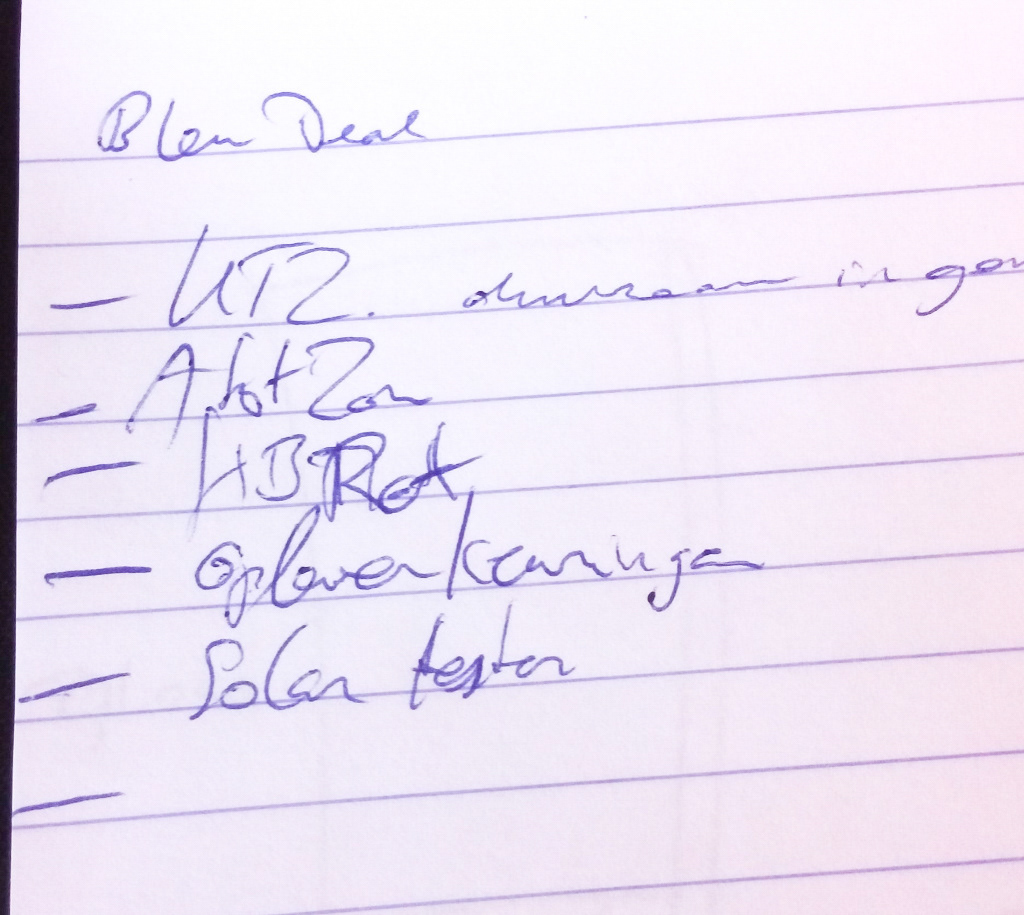 Deal
- UTZ.
- A tot Zon
- HB Rot
- Oplever/keuringen
- Solar testen
-